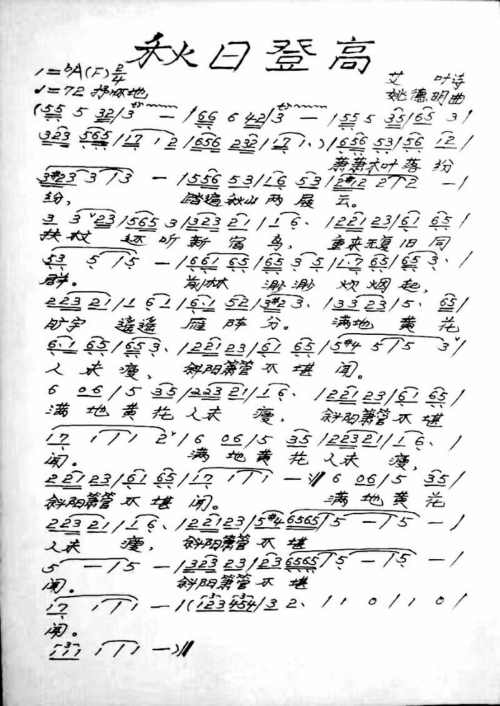 秋日登高
1=♭A(F) 2/4
艾 叶诗
♩=72 抒怀地
姚德明曲
(55 5 32/3 — /66 6 42/3 — /55 5 35/65 3/
323 565/17 12/656 232/171、)/656 53/56 12/
萧萧木叶落纷
3#23 3/3 — /556 53/16 53/2#12 2/2 — /
纷, 踏遍秋山两屐云。
3 3 23/565 3/323 21/16、/221 23/61 65/
扶杖 还听新宿鸟, 重来无复旧同
53 5/5 — /661 65/65 35/1·7 65/65 3、/
群。 荒林 渺渺 炊烟起,
223 21/1 61/6·1 52/3#2 3、/33 23/5、65/
旷宇 遥遥 雁阵分。 满地 黄花
6·1 65/65 3、/221 23/61 65/5#4 5/5 3/
人未瘦, 斜阳箫管不堪闻。
6 06/5 35/223 21/16、/221 23/61 65/
满地黄花人未 瘦, 斜阳箫管不堪
17 1/1 2/6 06/5 35/223 21/16、/
闻。 满地黄花人未瘦,
221 23/61 65/17 1/1 — :// 6 06/5 35/
斜阳箫管不堪 闻。 满地黄花
223 21/16、/221 23/5#4 6565/5 — /5 — /
人未 瘦, 斜阳箫管不堪
5 — /5 — /323 23/23 6565/5 — /5 — /
闻。 斜阳箫管不堪
17 1/1 — /(123 454/3 2、/1 1 0/1 0/
闻。
111 1/1 —)//